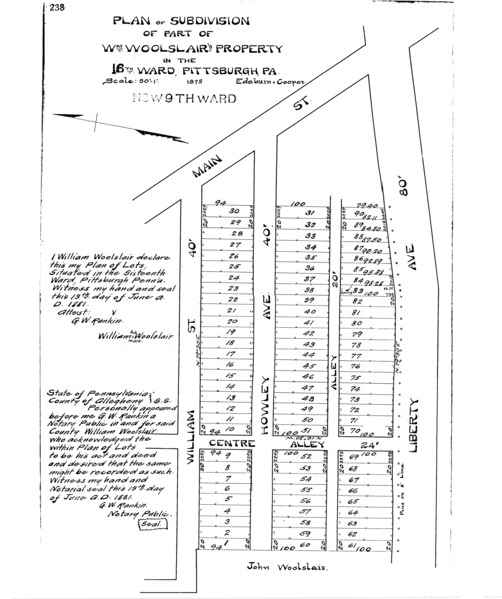 238
PLAN OF SUBDIVISION
OF PART OF
WM WOOLSLAIR'S PROPERTY
IN THE
16TH WARD, PITTSBURGH PA.
Scale: 50':1" 1875 Edeburn & Cooper
NOW 9TH WARD
MAIN ST.
80'
94 100 79.40
30 31 90 82.11
29 32 89 84.80
28 33 88 87.50
27 34 87 90.20
26 35 86 92.89
25 36 85 95.58
24 37 84 98.28
23 38 83 100
22 39 82
21 40 81
20 41 80
19 42 79
18 43 78
17 44 77
16 45 76
15 46 75
14 47 74
13 48 73
12 49 72
11 50 71
10 51 70
94 100 100
WILLIAM ST. 40'
HOWLEY AVE. 40'
ALLEY 20'
LIBERTY AVE.
CENTRE ALLEY 24'
94 100
9 52 69
8 53 68
7 54 67
6 55 66
5 56 65
4 57 64
3 58 63
2 59 62
1 60 61
94 100 100
John Woolslair.
I William Woolslair declare
this my Plan of Lots,
Situated in the Sixteenth
Ward, Pittsburgh Penn'a.
Witness my hand and seal
this 13th day of June A.
D. 1881.
Attest:
G.W. Rankin.
his
William Woolslair
mark
State of Pennsylvania
County of Allegheny } S.S.
Personally appeared
before me G.W. Rankin a
Notary Public in and for said
County William Woolslair
who acknowledged the
within Plan of Lots
to be his act and deed
and desired that the same
might be recorded as such.
Witness my hand and
Notarial seal this 13th day
of June A.D. 1881.
G.W. Rankin
Notary Public.
Seal.